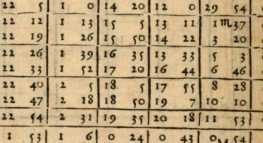 22 5 1 0 14 20 12 0 29 54
22 12 1 13 15 5 13 11 1 ♏ 37
22 19 1 26 15 50 14 22 3 20
22 26 1 39 16 35 13 33 5 3
22 33 1 52 17 20 16 44 6 46
22 40 2 5 18 5 17 55 8 28
22 47 2 18 18 50 19 7 10 10
22 54 2 31 19 35 20 18 11 53
1 53 1 6 0 24 0 43 0 54